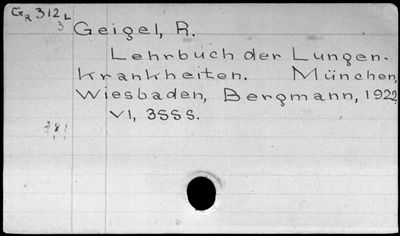 G2 312 L
3
Geigel, R.
Lehrbuch der Lungen-
krankheiten. München,
Wiesbaden, Bergmann, 1922
VI, 355 S.